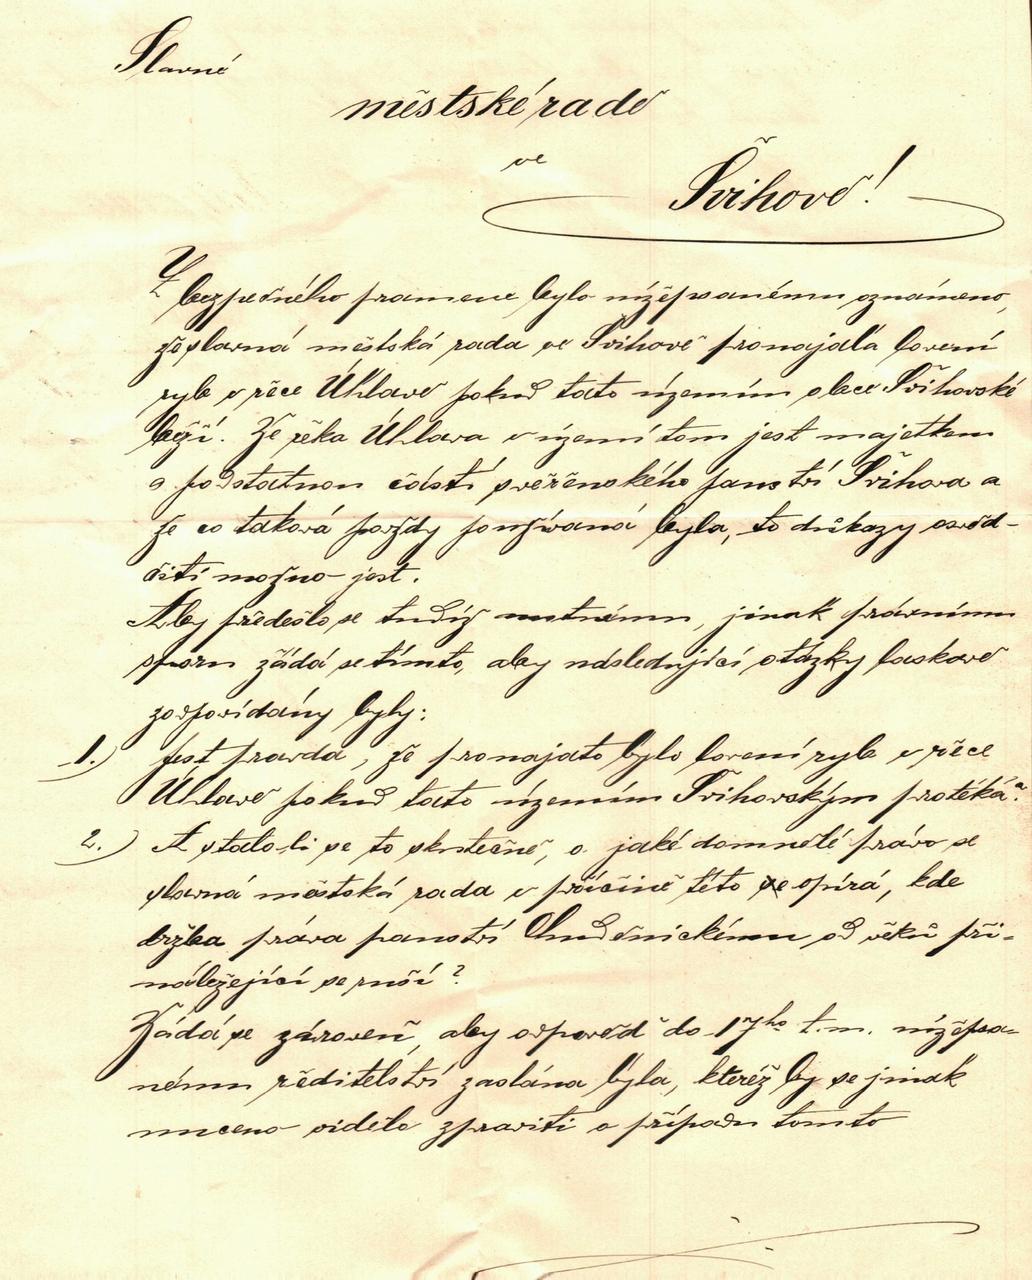 Slavné
městské radě
ve
Švihově!
Z bezpečného pramene bylo nížepsanému oznámeno,
že slavná městská rada ve Švihově pronajala lovení
ryb v řece Úhlavě pokud tato územím obce Švihovské
běží. Že řeka Úhlava v území tom jest majetkem
a podstatnou částí svěřenského panství Švihova a
že co taková povždy používaná byla, to důkazy osvěd-
čiti možno jest.
Aby předešlo se tudíž nutnému, jinak právnímu
sporu žádá se tímto, aby následující otázky laskavě
zodpovídány byly:
1.) Jest pravda, že pronajato bylo lovení ryb v řece
Úhlavě pokud tato územím Švihovským protéká?
2.) A stalo-li se to skutečně, o jaké domnělé právo se
slavná městská rada v příčině této se opírá, kde
držba práva panství Chudenickému od věků při-
náležející se ruší?
Žádá se zároveň, aby odpověď do 17ho t.m. nížepsa-
nému ředitelství zaslána byla, kteréž by se jinak
nuceno vidělo zpraviti o případu tomto